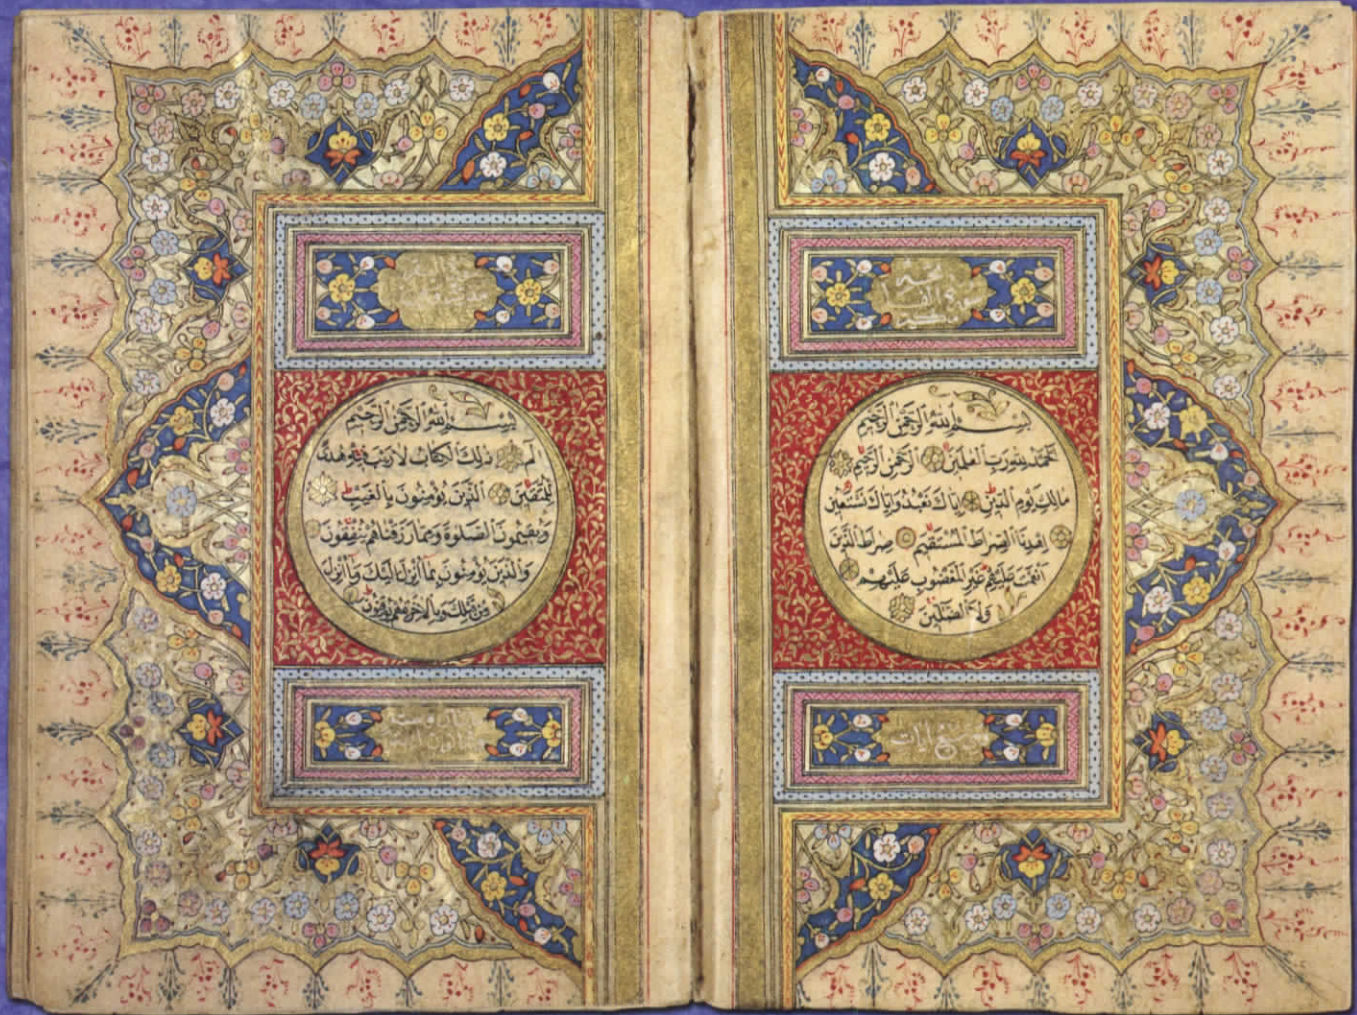 سورة الفاتحة
مكية
بِسْمِ اللهِ الرَّحْمٰنِ الرَّحِيمِ
اَلْحَمْدُ لِلّٰهِ رَبِّ الْعٰلَمِينَ الرَّحْمٰنِ الرَّحِيمِ
مَالِكِ يَوْمِ الدِّينِ اِيَّاكَ نَعْبُدُ وَاِيَّاكَ نَسْتَعِينُ
اِهْدِنَا الصِّرَاطَ الْمُسْتَقِيمَ صِرَاطَ الَّذِينَ
اَنْعَمْتَ عَلَيْهِمْ غَيْرِ الْمَغْضُوبِ عَلَيْهِمْ
وَلَا الضَّالِّينَ
سبع ايات
سورة البقرة
بِسْمِ اللهِ الرَّحْمٰنِ الرَّحِيمِ
الٓمٓ ذٰلِكَ الْكِتَابُ لَا رَيْبَ فِيهِ هُدًى
لِلْمُتَّقِينَ الَّذِينَ يُؤْمِنُونَ بِالْغَيْبِ
وَيُقِيمُونَ الصَّلٰوةَ وَمِمَّا رَزَقْنَاهُمْ يُنْفِقُونَ
وَالَّذِينَ يُؤْمِنُونَ بِمَا اُنْزِلَ اِلَيْكَ وَمَا اُنْزِلَ
مِنْ قَبْلِكَ وَبِالْاٰخِرَةِ هُمْ يُوقِنُونَ